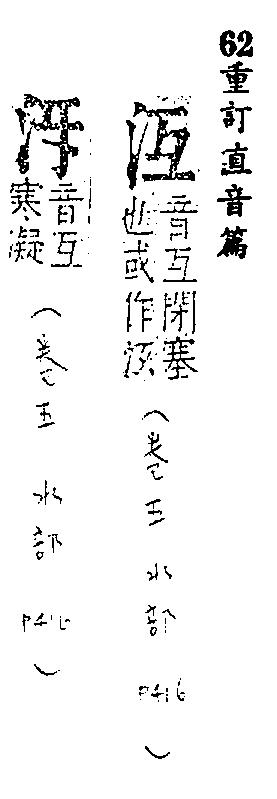 62重訂直音篇
沍 音互閉塞
也或作
（卷五 水部 P416）
音互
寒凝
（卷五 水部 P416）